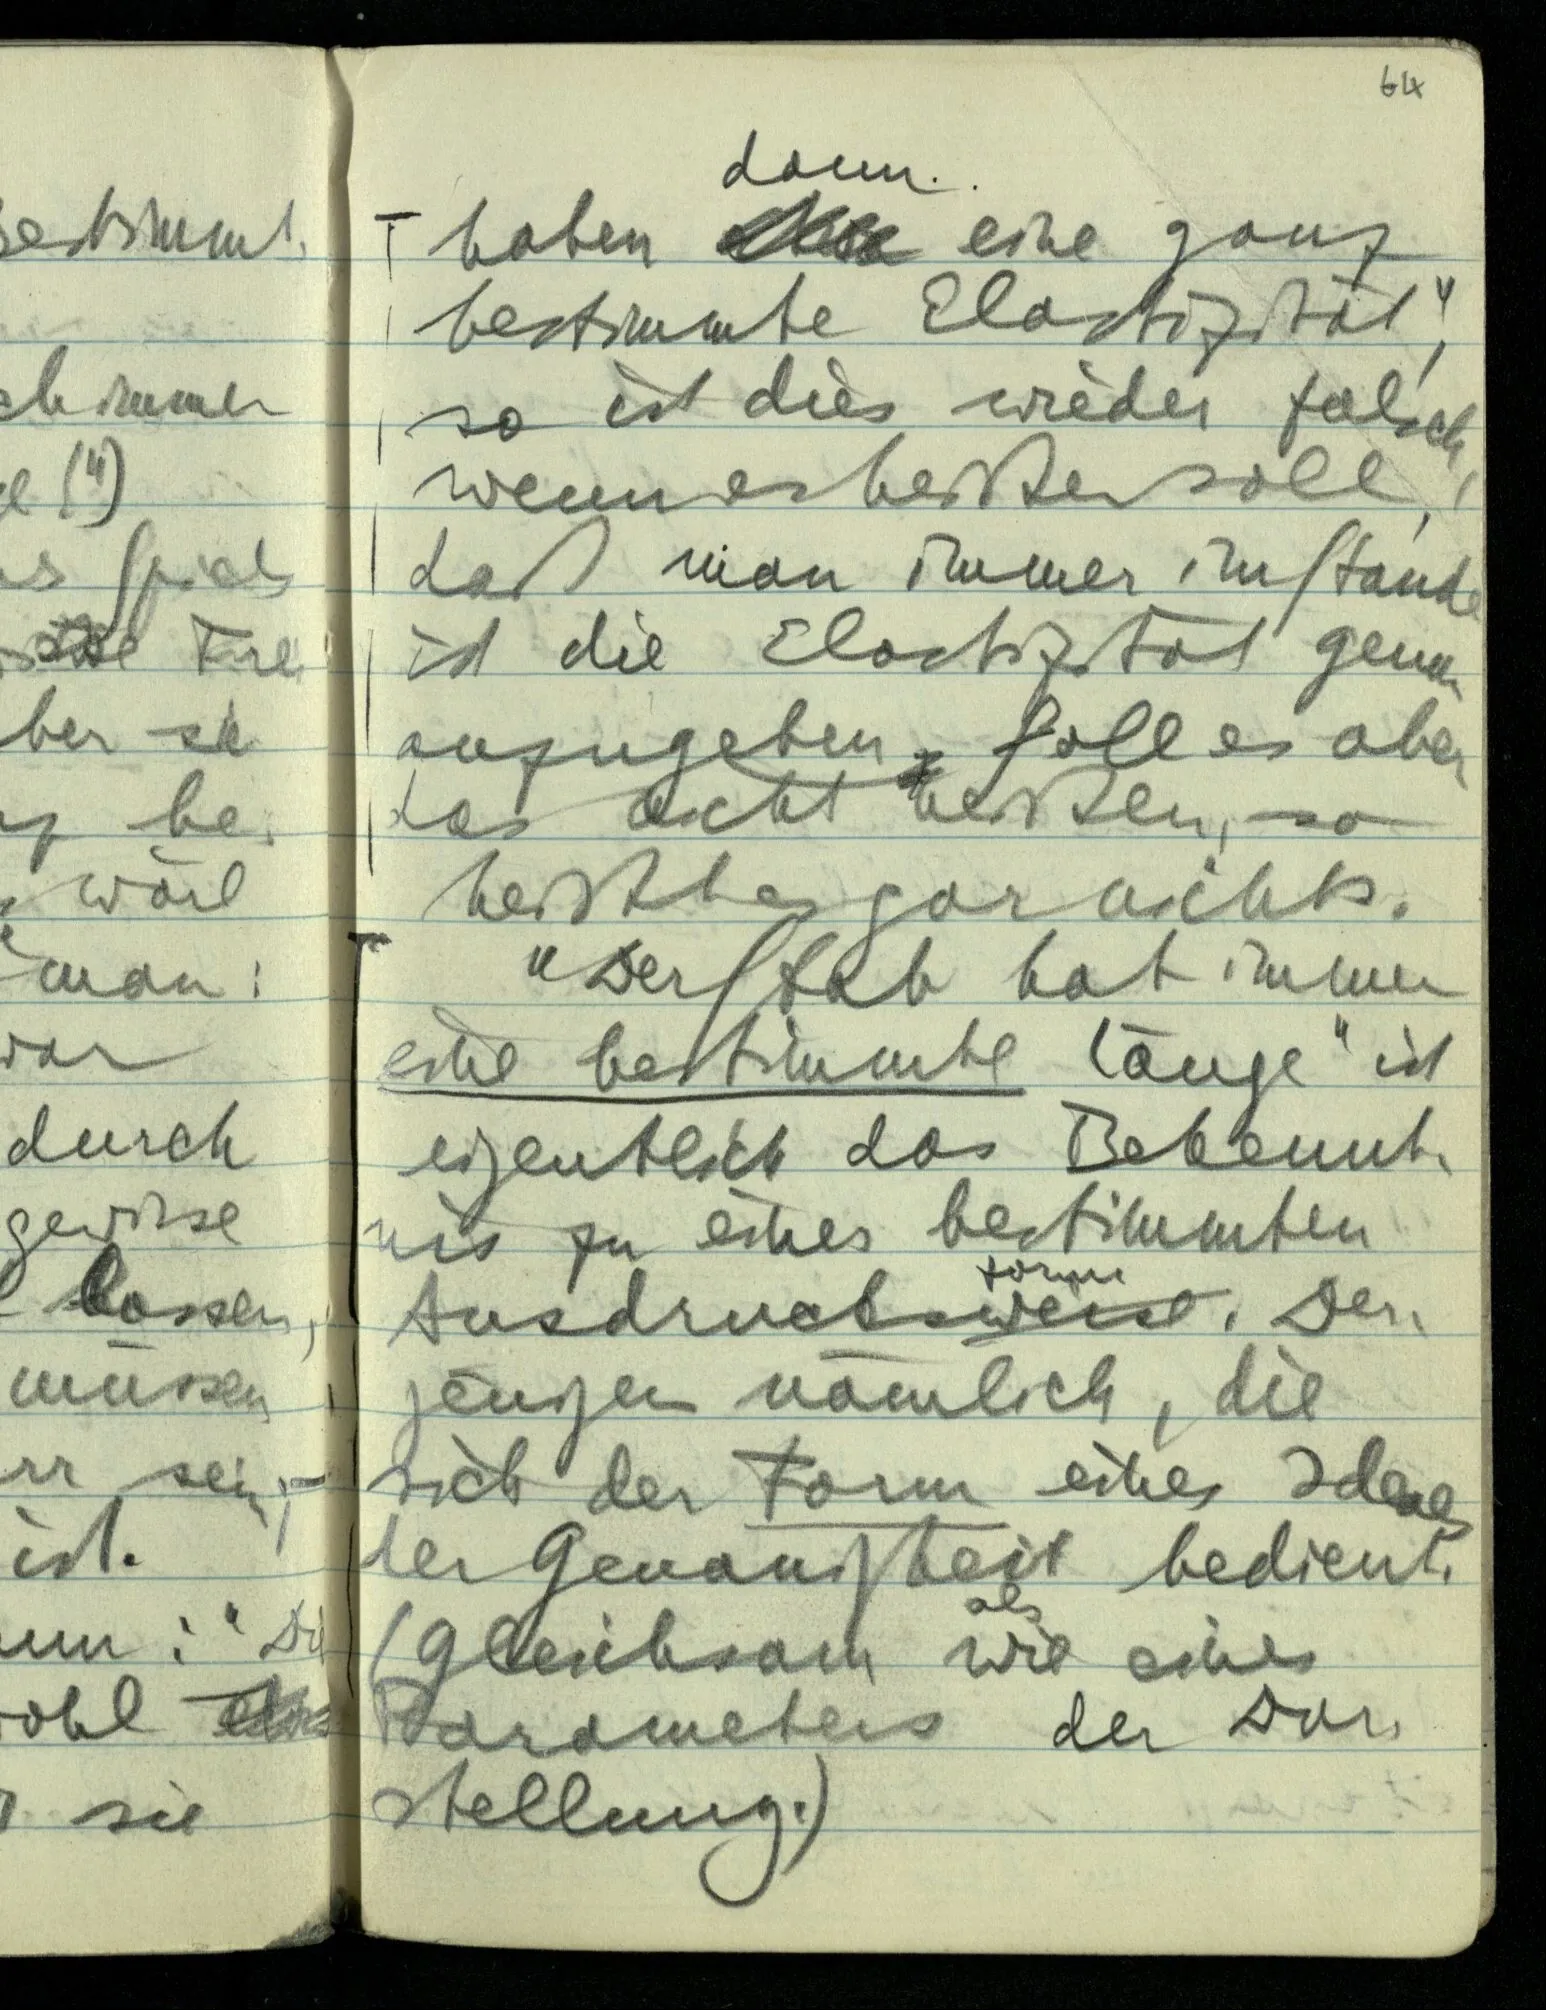 64
bestimmt.
immer
(")
Spiel
ber sie
be-
man:
durch
gewisse
lassen,
müssen
sein,
ist.
sie
dann
haben eine ganz
bestimmte Elastizität",
so ist dies wieder falsch,
wenn es heißen soll,
daß man immer imstande
ist die Elastizität genau
anzugeben, soll es aber
das nicht heißen, so
heißt es gar nichts.
"Der Stab hat immer
eine bestimmte Länge" ist
eigentlich das Bekennt-
nis zu einer bestimmten
form
Ausdrucksweise. Der-
jenigen nämlich, die
sich der Form eines Ideals
der Genauigkeit bedient.
als
(Gleichsam wie eines
Parameters der Dar-
stellung.)